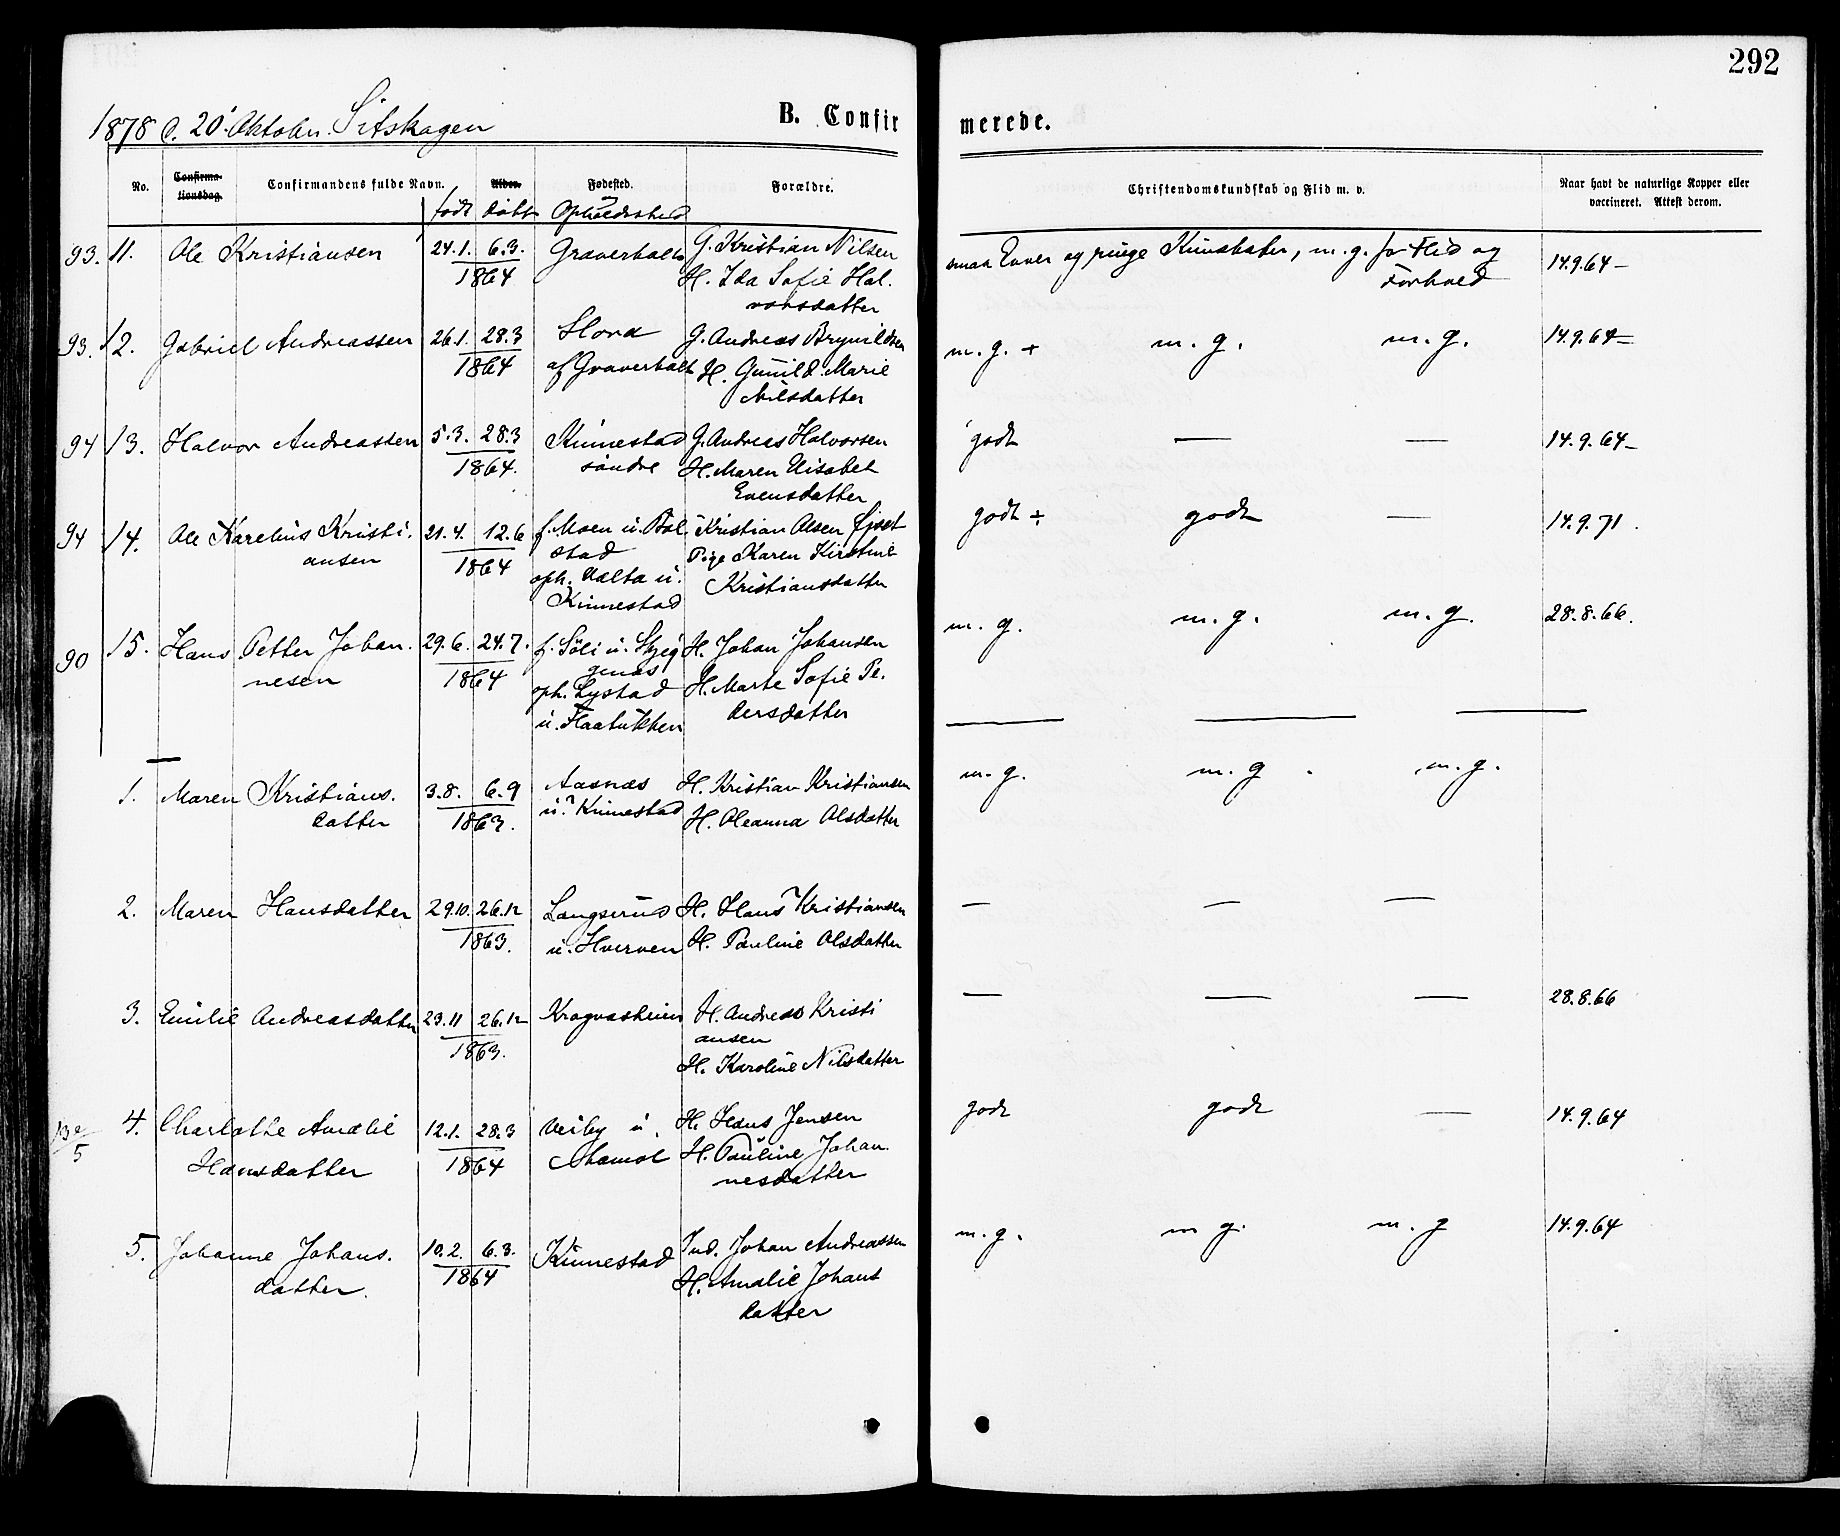 292
1878 d. 20' Oktober. Sitskogen
B. Confirmerede.
No.
Confirmationsdag.
Confirmandens fulde Navn.
Alder.
Fødested.
Forældre.
Christendomskundskab og Flid m. v.
Naar havt de naturlige Kopper eller
vaccineret. Attest derom.
født
døbt
Opholdsted
93. 11. Ole Kristiansen 24.1. 6.3. Graverholt G. Kristian Nilsen
1864 H. Ida Sofie Hal.
vorsdatter
smaa Evner og ringe Kundskaber, m. g. for Flid og
Forhold
14.9.64 –
93. 12. Gabriel Andreassen 26.1. 28.3 Stora G. Andreas Brynildsen
1864 af Graverholt H. Gunild Marie
Nilsdatter
m. g. + m. g. m. g. 14.9.64 –
94 13. Halvor Andreassen 5.3. 28.3 Kinnestad G. Andreas Halvorsen
1864. søndre H. Maren Elisabet
Evensdatter
godt — — 14.9.64 –
94 14. Ole Karelius Kristi. 21.4. 12.6 f. Moen u. Bol. Kristian Olsen
ansen 1864 stad Pige Karen Kirstine
oph. u. Kristiansdatter
Kinnestad
godt ÷ godt — 14.9.71.
90 15. Hans Petter Johan. 29.6. 24.7. f. Søli u. H. Johan Johansen
nesen 1864 oph. Lystad H. Marte Sofie Pe.
u. dersdatter
m. g. m. g. m. g. 28.8.66.
1. Maren Kristians. 3.8. 6.9 Aasnæs H. Kristian Kristiansen
datter 1863. u. Kinnestad H. Oleanna Olsdatter
m. g. m. g. m. g.
2. Maren Hansdatter 29.10. 26.12 Langserud H. Hans Kristiansen
1863. u. Hverven H. Pauline Olsdatter
— — —
3. Emilie Andreasdatter 23.11 26.12 H. Andreas Kristi
1863. ansen
H. Karoline Nilsdatter
— — — 28.8.66
4. Charlotte Amalie 12.1. 28.3 Veiby u. H. Hans Jensen
Hansdatter 1864 H. Pauline Johan.
nesdatter
godt godt — 14.9.64
5. Johanne Johans. 10.2. 6.3. Kinnestad Ind. Johan Andreassen
datter. 1864 H. Amalie Johans
datter
m. g. m g. m. g 14.9.64